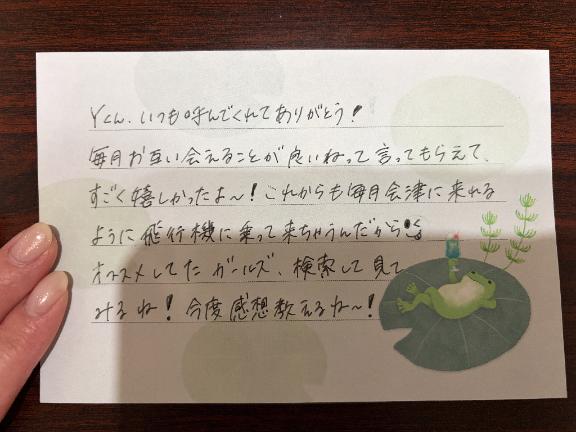 Yくん、いつも呼んでくれてありがとう!
毎月お互い会えることが良いねって言ってもらえて、
すごく嬉しかったよ〜!これからも毎月会津に来れる
ように飛行機に乗って来ちゃうんだから
オススメしてたガールズ、検索して見て
みるね!今度感想教えるね〜!